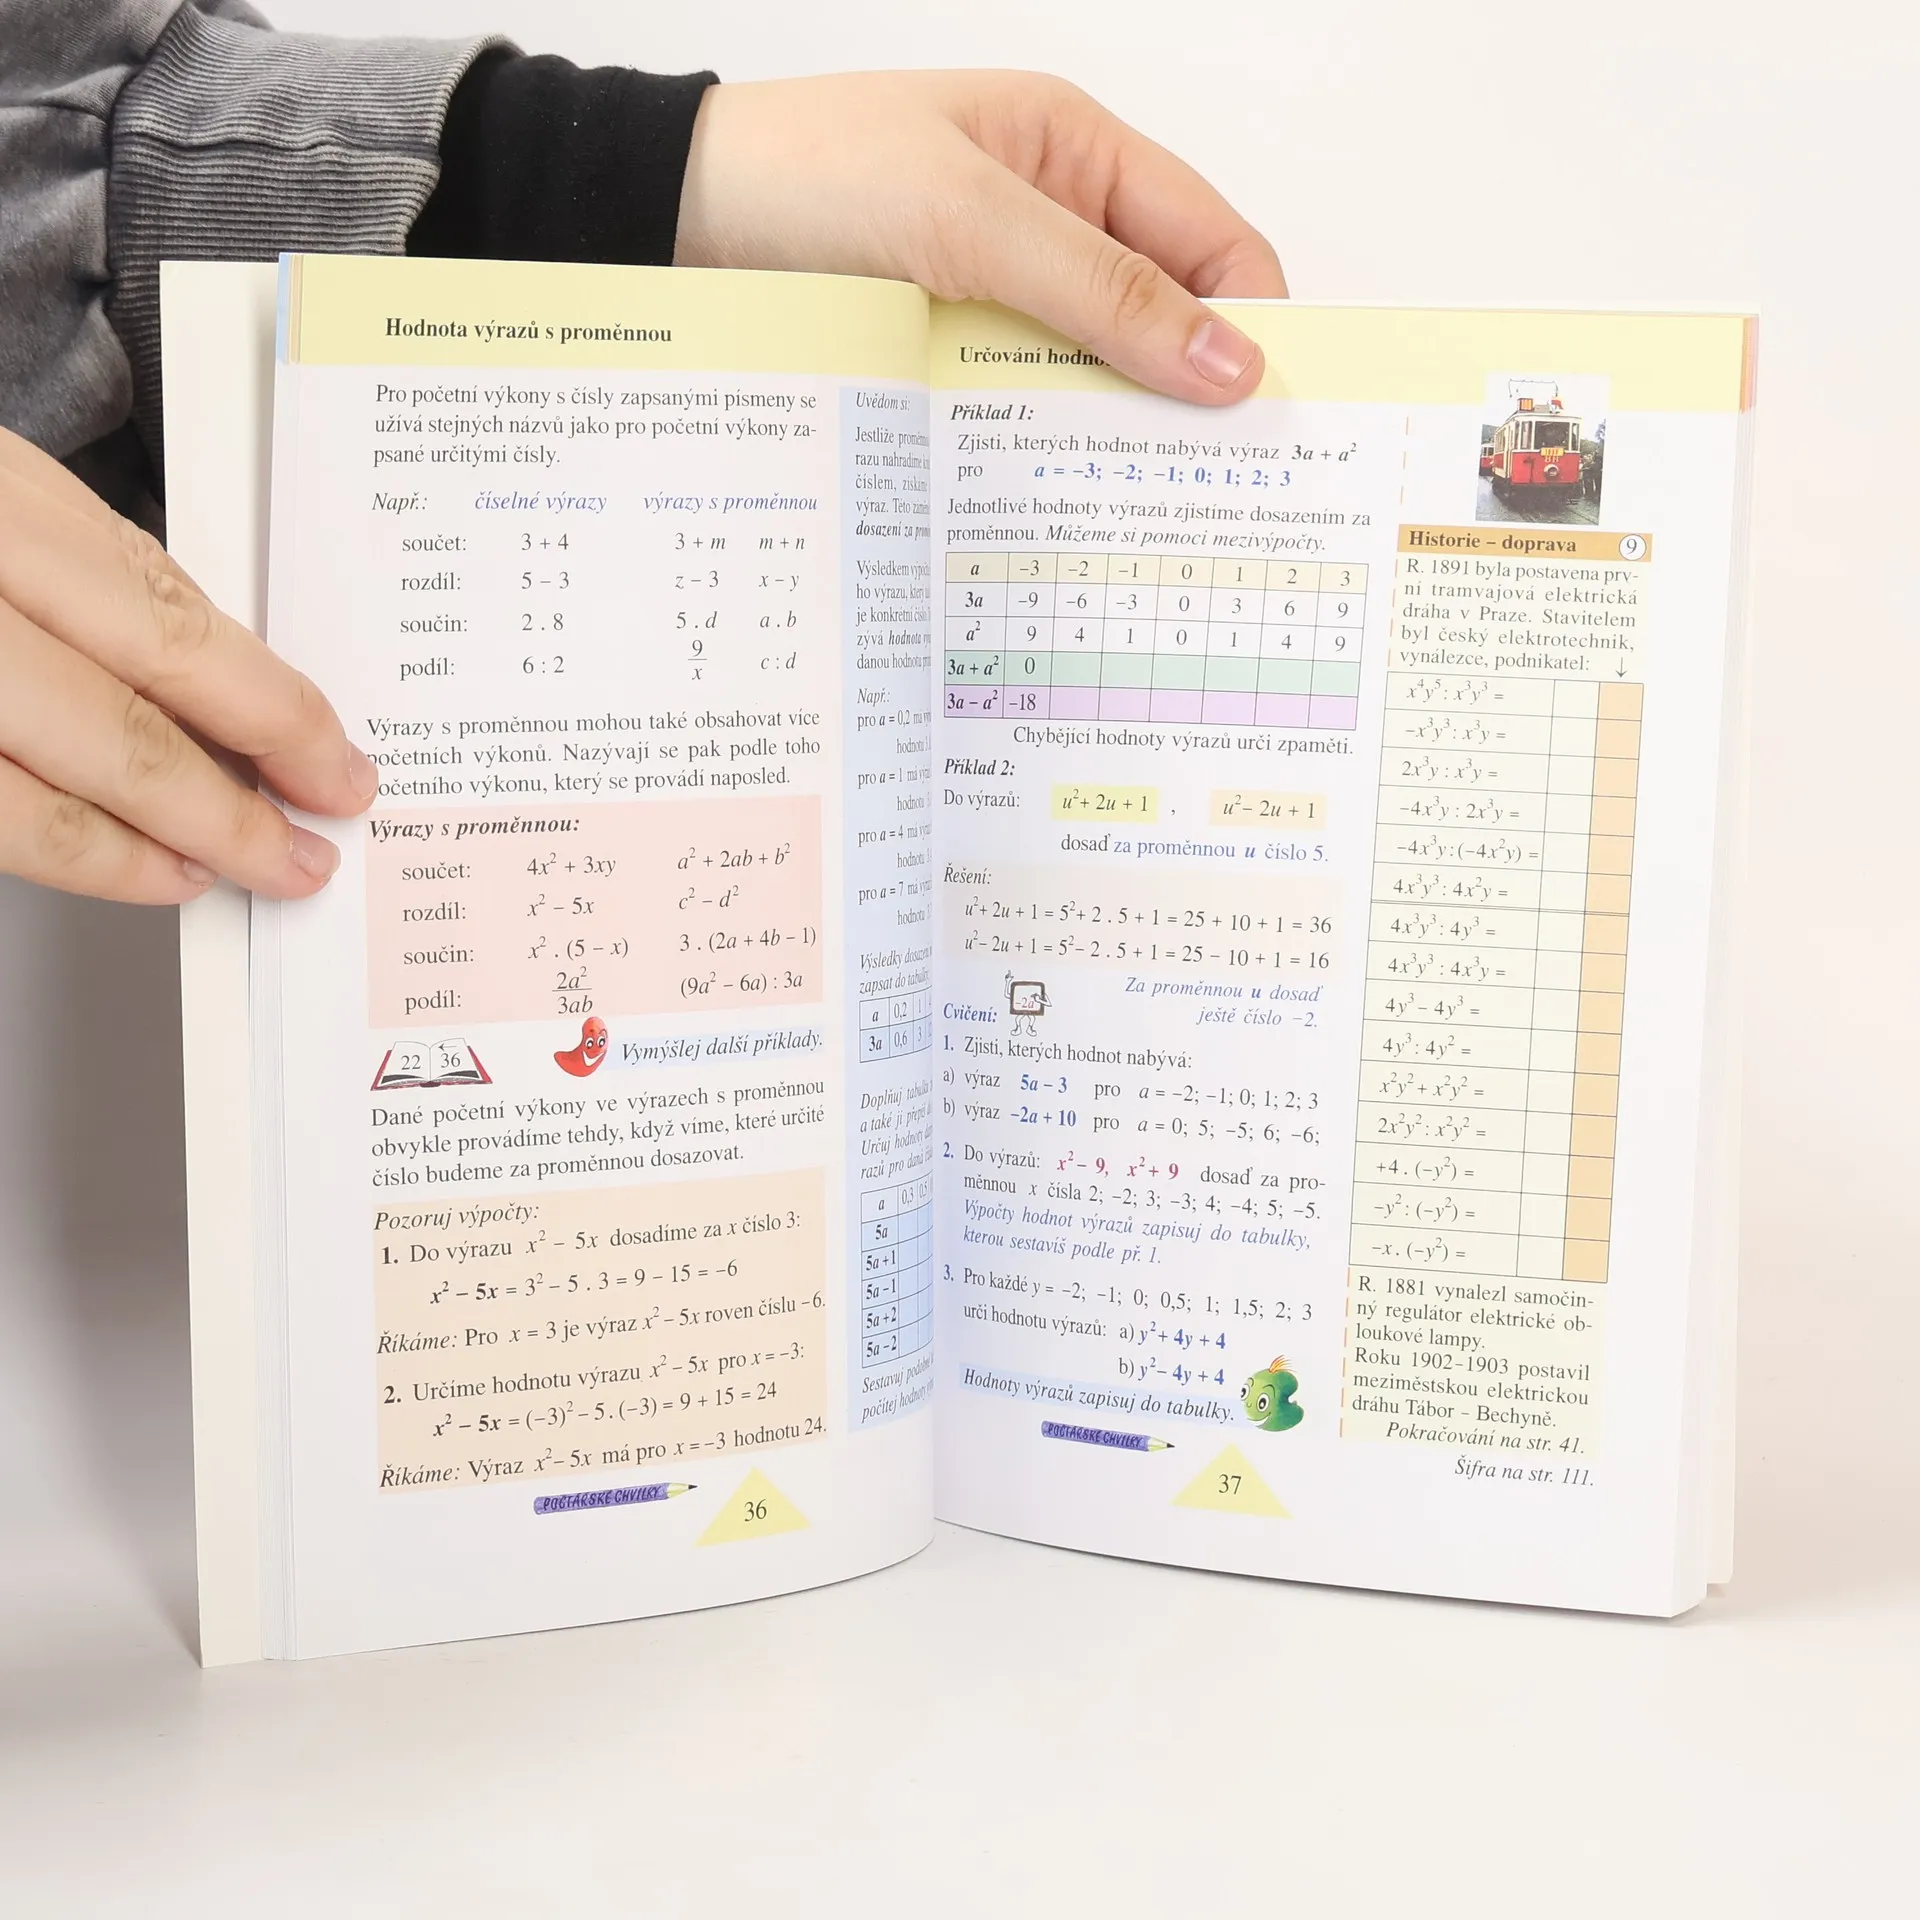 Hodnota výrazů s proměnnou
Pro početní výkony s čísly zapsanými písmeny se
užívá stejných názvů jako pro početní výkony za-
psané určitými čísly.
Např.: číselné výrazy výrazy s proměnnou
součet: 3 + 4 3 + m m + n
rozdíl: 5 – 3 z – 3 x – y
součin: 2 . 8 5 . d a . b
podíl: 6 : 2 9/x c : d
Výrazy s proměnnou mohou také obsahovat více
početních výkonů. Nazývají se pak podle toho
početního výkonu, který se provádí naposled.
Výrazy s proměnnou:
součet: 4x² + 3xy a² + 2ab + b²
rozdíl: x² – 5x c² – d²
součin: x² . (5 – x) 3 . (2a + 4b – 1)
podíl: 2a²/3ab (9a² – 6a) : 3a
22 36
Vymýšlej další příklady.
Dané početní výkony ve výrazech s proměnnou
obvykle provádíme tehdy, když víme, které určité
číslo budeme za proměnnou dosazovat.
Pozoruj výpočty:
1. Do výrazu x² – 5x dosadíme za x číslo 3:
x² – 5x = 3² – 5 . 3 = 9 – 15 = –6
Říkáme: Pro x = 3 je výraz x² – 5x roven číslu –6.
2. Určíme hodnotu výrazu x² – 5x pro x = –3:
x² – 5x = (–3)² – 5 . (–3) = 9 + 15 = 24
Říkáme: Výraz x² – 5x má pro x = –3 hodnotu 24.
POČTÁŘSKÉ CHVILKY
36
Uvědom si:
Jestliže
razu nahradíme
číslem, získáme
výraz. Této
dosazení za
Výsledkem
ho výrazu, který
je konkrétní
zývá hodnota
danou hodnotu
Např.:
pro a = 0,2 má
hodnotu
pro a = 1 má
hodnotu
pro a = 4 má
hodnotu
pro a = 7 má
hodnotu
Výsledky
zapsat do tabulky.
a 0,2 1
3a 0,6 3
Doplňuj
a také ji
Určuj hodnoty
razů pro daná
a 0,3 0,5
5a
5a + 1
5a – 1
5a + 2
5a – 2
Sestavuj
počítej hodnoty
Určování
Příklad 1:
Zjisti, kterých hodnot nabývá výraz 3a + a²
pro a = –3; –2; –1; 0; 1; 2; 3
Jednotlivé hodnoty výrazů zjistíme dosazením za
proměnnou. Můžeme si pomoci mezivýpočty.
a –3 –2 –1 0 1 2 3
3a –9 –6 –3 0 3 6 9
a² 9 4 1 0 1 4 9
3a + a² 0
3a – a² –18
Chybějící hodnoty výrazů urči zpaměti.
Příklad 2:
Do výrazů: u² + 2u + 1 , u² – 2u + 1
dosaď za proměnnou u číslo 5.
Řešení:
u² + 2u + 1 = 5² + 2 . 5 + 1 = 25 + 10 + 1 = 36
u² – 2u + 1 = 5² – 2 . 5 + 1 = 25 – 10 + 1 = 16
Za proměnnou u dosaď
ještě číslo –2.
–2a
Cvičení:
1. Zjisti, kterých hodnot nabývá:
a) výraz 5a – 3 pro a = –2; –1; 0; 1; 2; 3
b) výraz –2a + 10 pro a = 0; 5; –5; 6; –6;
2. Do výrazů: x² – 9, x² + 9 dosaď za pro-
měnnou x čísla 2; –2; 3; –3; 4; –4; 5; –5.
Výpočty hodnot výrazů zapisuj do tabulky,
kterou sestavíš podle př. 1.
3. Pro každé y = –2; –1; 0; 0,5; 1; 1,5; 2; 3
urči hodnotu výrazů: a) y² + 4y + 4
b) y² – 4y + 4
Hodnoty výrazů zapisuj do tabulky.
POČTÁŘSKÉ CHVILKY
37
Historie – doprava 9
R. 1891 byla postavena prv-
ní tramvajová elektrická
dráha v Praze. Stavitelem
byl český elektrotechnik,
vynálezce, podnikatel: ↓
x⁴y⁵ : x³y³ =
–x³y³ : x³y =
2x³y : x³y =
–4x³y : 2x³y =
–4x³y : (–4x²y) =
4x³y³ : 4x²y =
4x³y³ : 4y³ =
4x³y³ : 4x³y =
4y³ – 4y³ =
4y³ : 4y² =
x²y² + x²y² =
2x²y² : x²y² =
+4 . (–y²) =
–y² : (–y²) =
–x . (–y²) =
R. 1881 vynalezl samočin-
ný regulátor elektrické ob-
loukové lampy.
Roku 1902–1903 postavil
meziměstskou elektrickou
dráhu Tábor – Bechyně.
Pokračování na str. 41.
Šifra na str. 111.